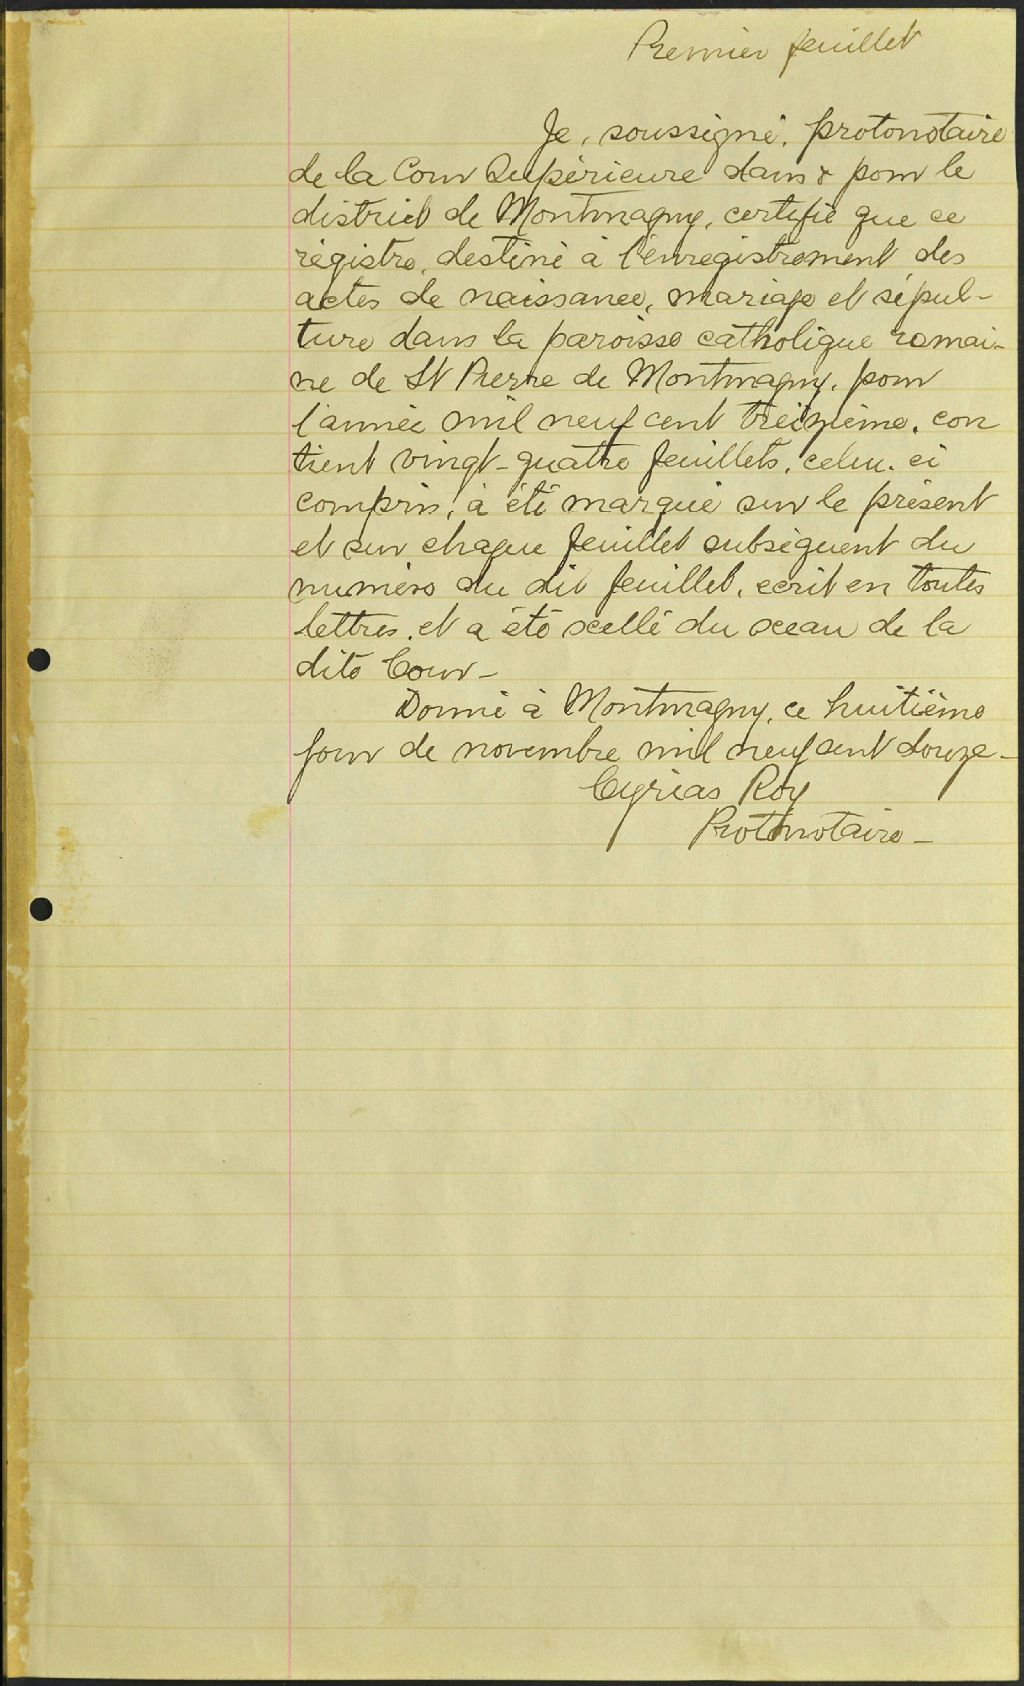 Premier feuillet
Je, soussigné, protonotaire
de la Cour Supérieure dans & pour le
district de Montmagny, certifie que ce
régistre, destiné à l'enregistrement des
actes de naissance, mariage et sépul-
ture dans la paroisse catholique romai-
ne de St Pierre de Montmagny, pour
l'année mil neuf cent treizième, con
tient vingt-quatre feuillets, celui-ci
compris, a été marqué sur le présent
et sur chaque feuillet subséquent du
numéro du dit feuillet, écrit en toutes
lettres, et a été scellé du sceau de la
dite Cour-
Donné à Montmagny, ce huitième
jour de novembre mil neuf cent douze-
Cyrias Roy
Protonotaire-